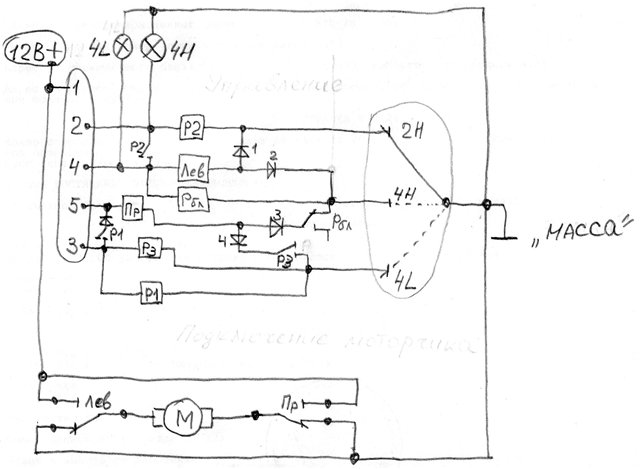 12В+ 4L 4H
1
Управление
2 P2 2H
P2 1 2
4 Лев
Рбл 4H
5 Пр 3 Рбл
P1 4
3 P3 P3
P1 4L
„МАССА"
Подключение моторчика
Лев М Пр